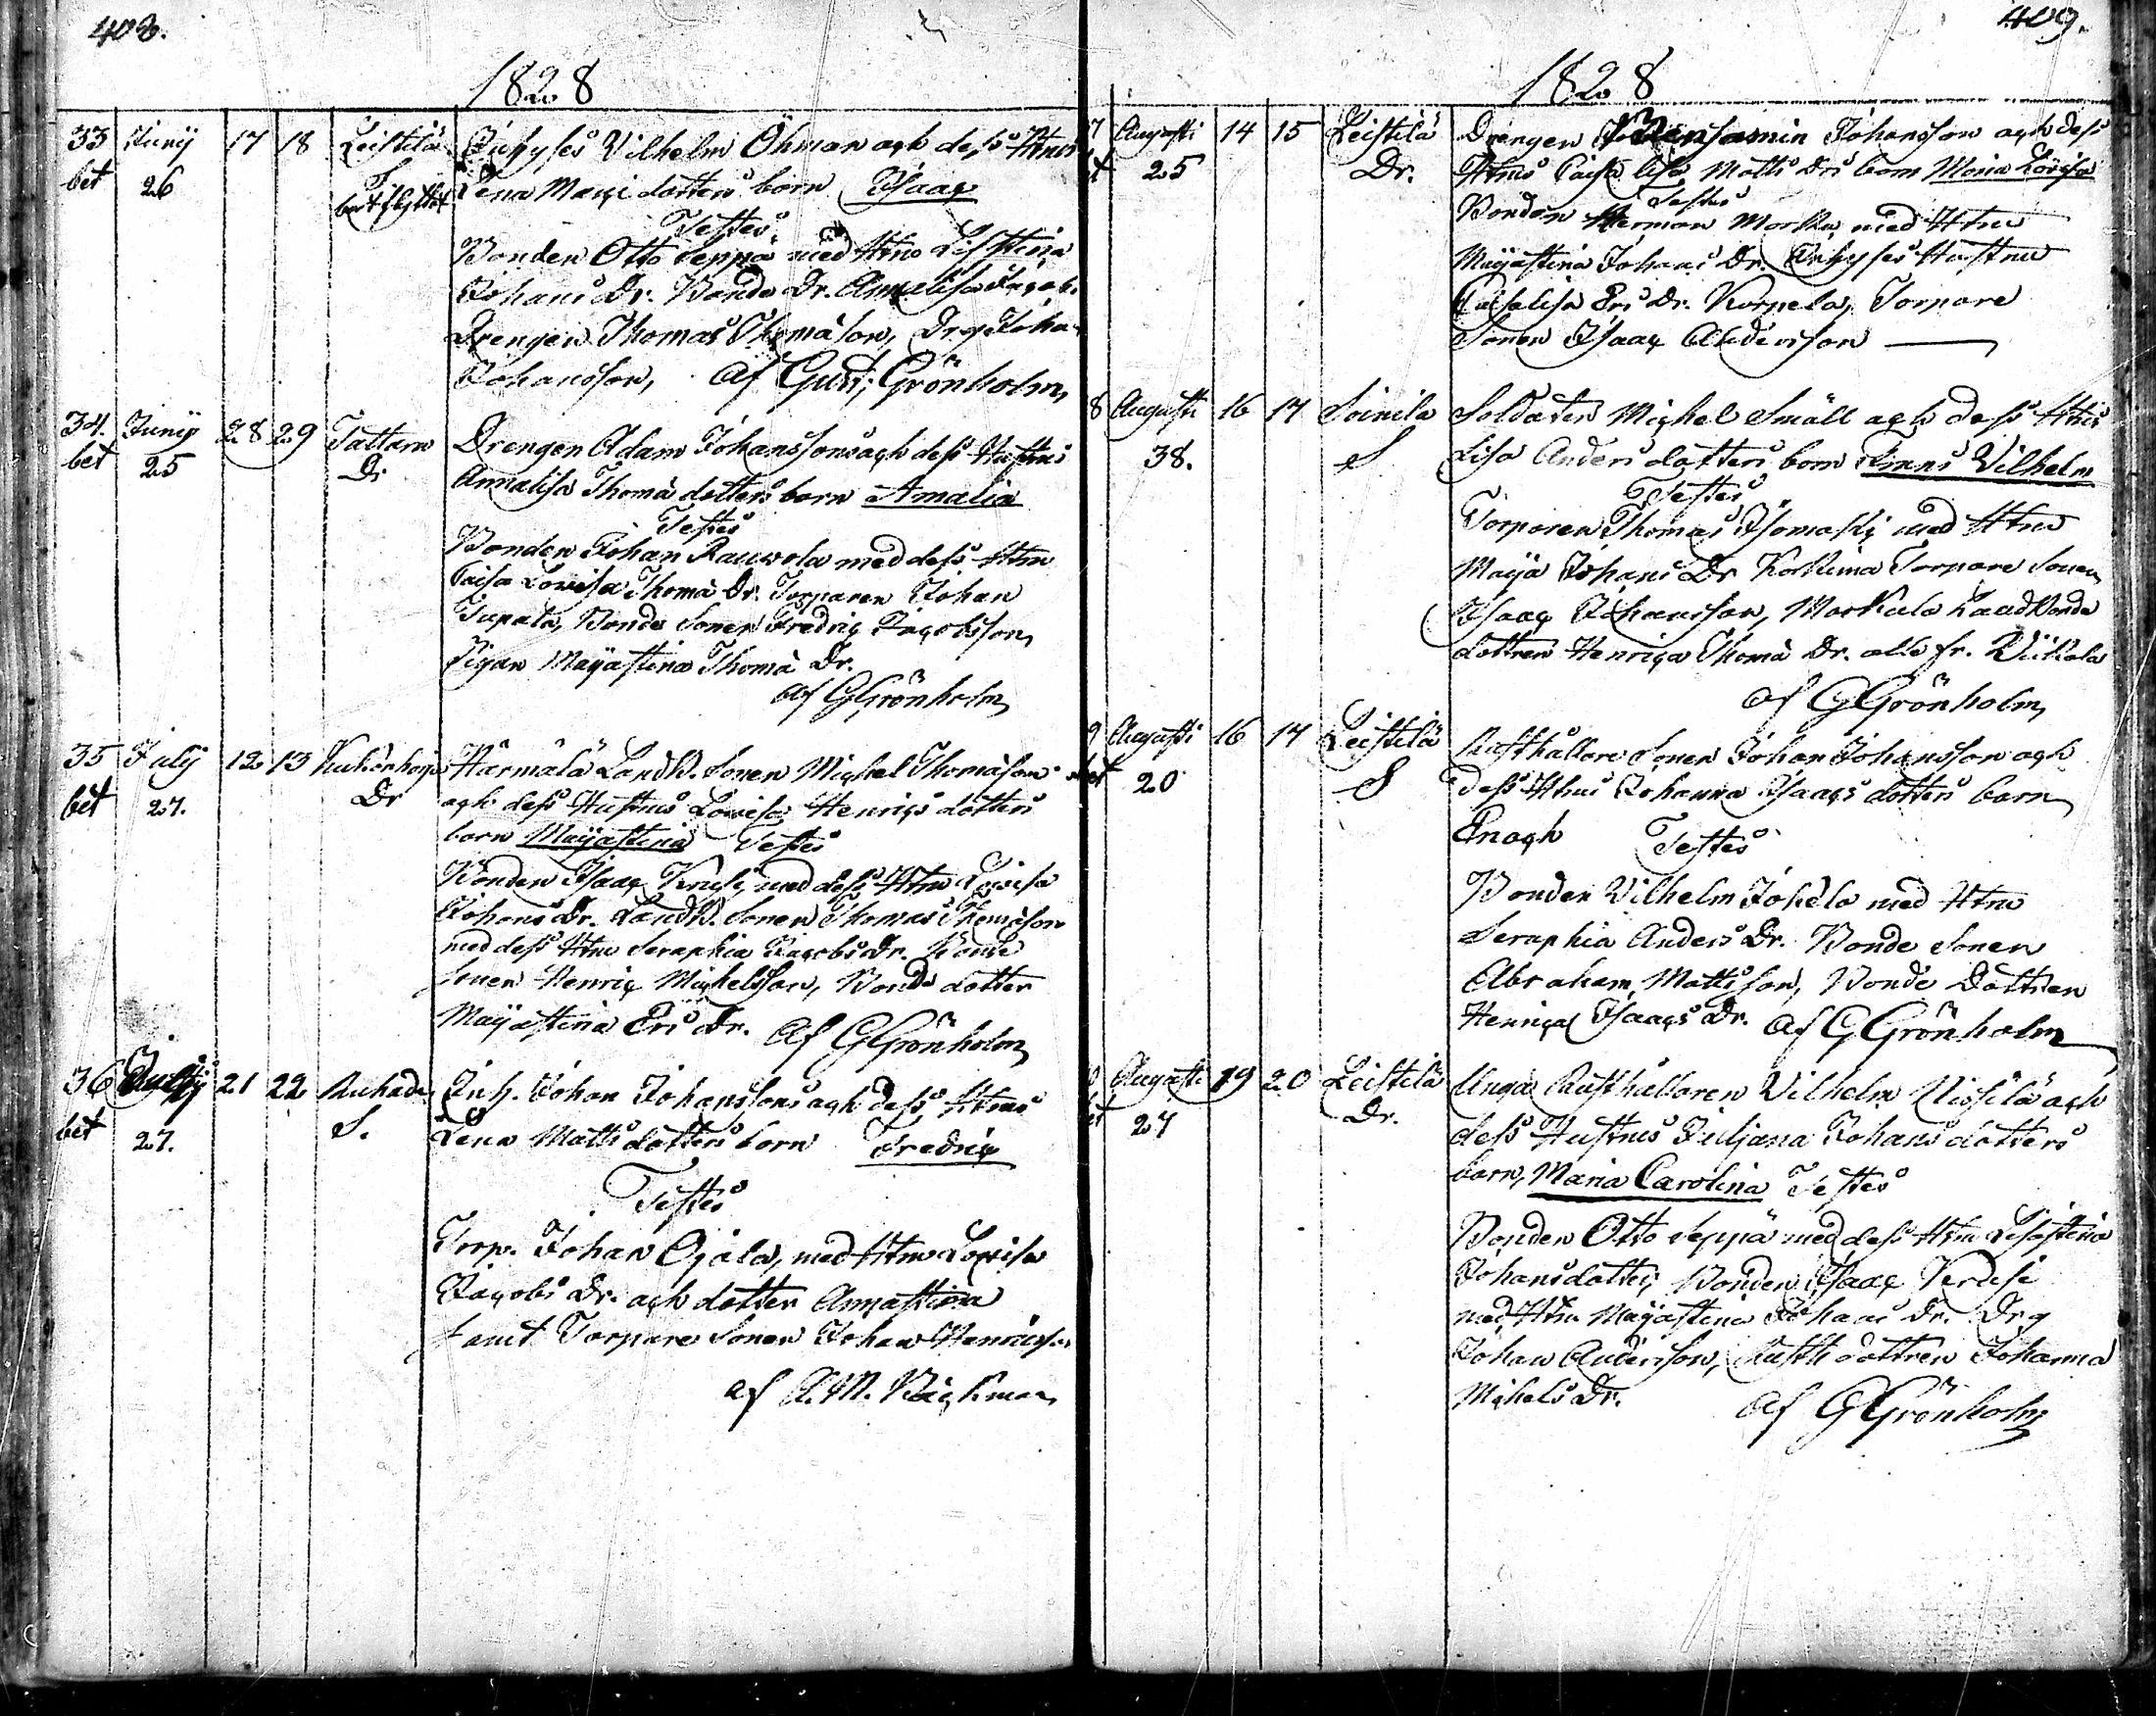 408.
1828
33 Junij 17 18 Leistilä Inhyses Vilhelm Öhman och dess Htrus
bet 26 S Lena Maria dotters barn Isaac
bortflyttat
Testes
Bonden Otto Seppä med Htru Lisa Stina
Johans Dr. Bonde Dr. Annalisa Jacobs
Drengen Thomas Thomasson, Drg Johan
Johansson, af Gust: Grönholm
34. Junij 28 29 Tattara Drengen Adam Johanssons och dess Hustrus
bet 25 Dr Annalisa Thomä dotters barn Amalia
Testes
Bonden Johan Rauvola med dess Htru
Caisa Lovisa Thomä Dr. Torparen Johan
Tupala, Bonde Sonen Fredric Jacobsson,
Pigan Majastina Thomä Dr.
af GGrönholm
35 Julij 12 13 Härmälä LandB. Sonen Michel Thomasson
bet 27. Dr och dess Hustrus Lovisa Henrics dotters
barn Majastina Testes
Bonden Isaac med dess Htru Lovisa
Johans Dr. LandB. Sonen Thomas Thomasson
med dess Htru Seraphia Jacobs Dr. Bonde
Sonen Henric Michelsson, Bonde dotter
Majastina Ers Dr. af GGrönholm
36 Julij 21 22 Inh. Johan Johanssons och dess Htrus
bet 27. S. Lena Matts dotters barn Fredric
Testes
Torp. Johan Ojala, med Htru Lovisa
Jacobs Dr. och dotter Annastina
samt Torpare Sonen Johan Henricsson
af A.M. Bäckman
409.
1828
7 Augusti 14 15 Leistilä Drengen Benjamin Johansson och dess
bet 25 Dr. Htrus Caisa Lisa Matts Drs barn Maria Lovisa
Testes
Bonden Herman Morka med Htru
Majastina Johans Dr. Inhyses Hustru
Caisalisa Ers Dr. Korpela, Torpare
Sonen Isaac Andersson
8 Augusti 16 17 Soinila Soldaten Michel Smäll och dess Htrus
38. S Lisa Anders dotters barn Frans Vilhelm
Testes
Torparen Thomas Isomäki med Htru
Maja Johans Dr Torpare Sonen
Isaac Johansson, Morkula LandBonde
dottren Henrica Thomä Dr. alla fr.
af GGrönholm
9 Augusti 16 17 Leistilä Rusthållare Sonen Johan Johansson och
bet 20 S dess Htrus Johanna Isaacs dotters barn
Enoch Testes
Bonden Vilhelm Jokela med Htru
Seraphia Anders Dr. Bonde Sonen
Abraham Mattsson, Bonde Dottren
Henrica Isaacs Dr. af GGrönholm
Augusti 19 20 Leistilä Unga Rusthållaren Vilhelm Nissilä och
bet 27 Dr. dess Hustrus Juljana Johans dotters
barn, Maria Carolina Testes
Bonden Otto Seppä med dess Htru Lisastina
Johansdotter, Bonden Isaac
med Htru Majastina Johans Dr. Drg
Johan Andersson, Rusth dottren Johanna
Michels Dr. af GGrönholm